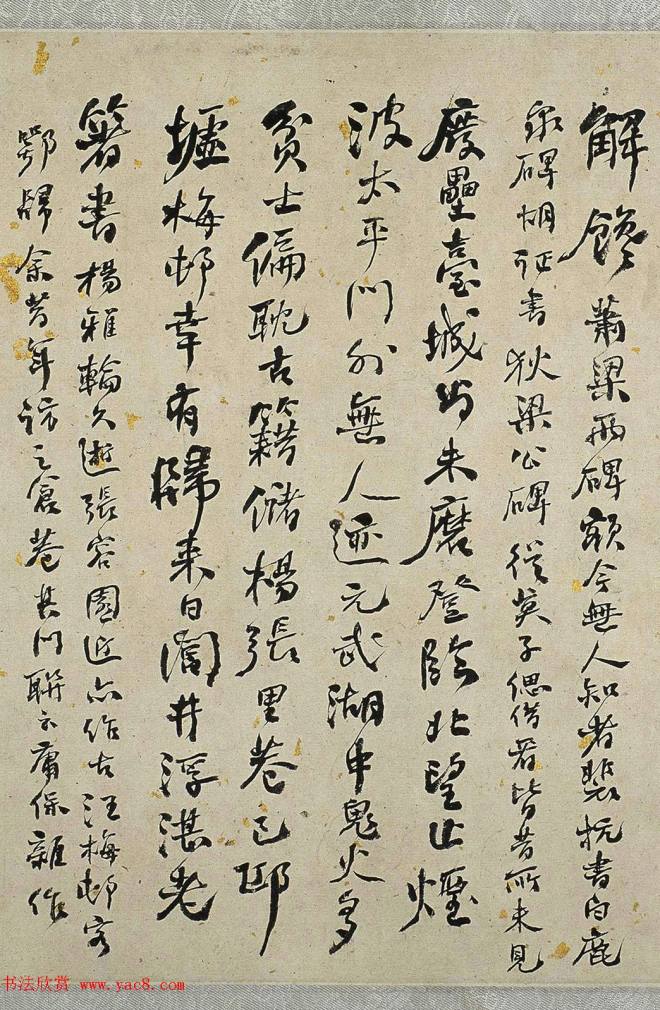 解饞蕭梁兩碑額今無人知者裴抗書白鹿
泉碑胡証書狄梁公碑從莫子偲借著皆昔所未見
廢壘臺城尚未磨登臨北望止煙
波太平門外無人迹元武湖中鬼火多
貧士偏耽古籍儲楊張里巷已邱
墟梅邨幸有歸来日閭井浮湛老
箸書楊雅輪久逝張容園近亦作古汪梅邨客
鄂歸余昔年訪之倉巷其門聯云庸保雜作
书法欣赏 www.yac8.com